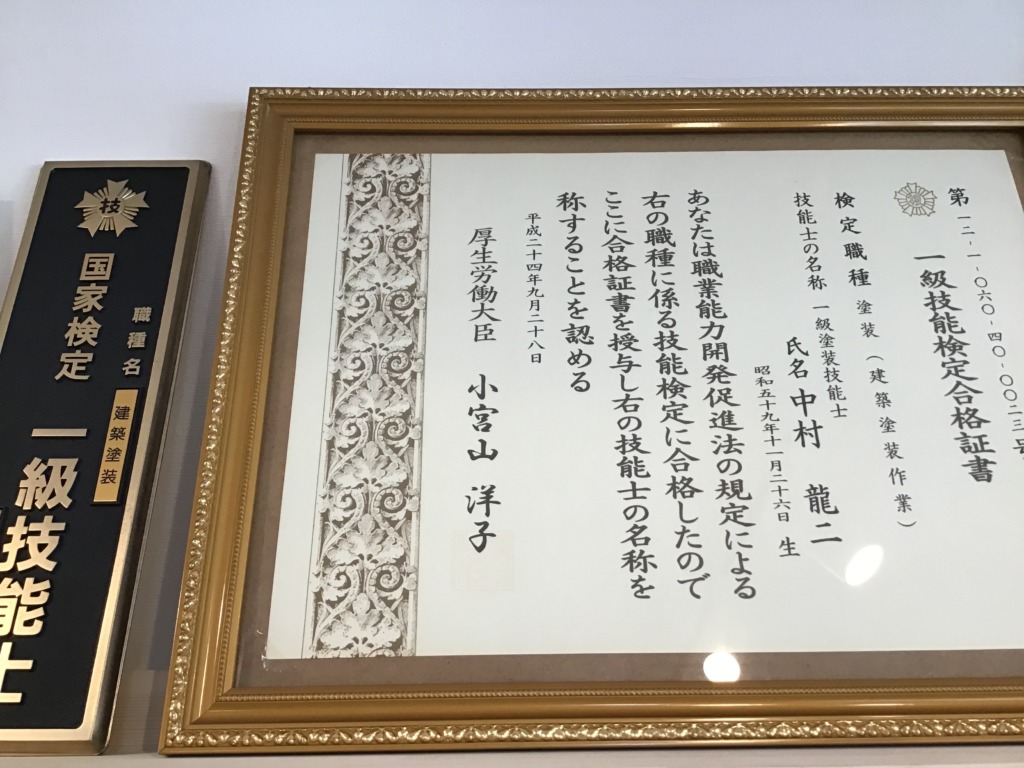 第一二-一-〇六〇-四〇-〇〇二三号
一級技能検定合格証書
検定職種 塗装(建築塗装作業)
技能士の名称 一級塗装技能士
氏名 中村 龍二
昭和五十九年十一月二十六日 生
あなたは職業能力開発促進法の規定による
右の職種に係る技能検定に合格したので
ここに合格証書を授与し右の技能士の名称を
称することを認める
平成二十四年九月二十八日
厚生労働大臣 小宮山 洋子
技
国家検定
職種名
建築塗装
一級技能士